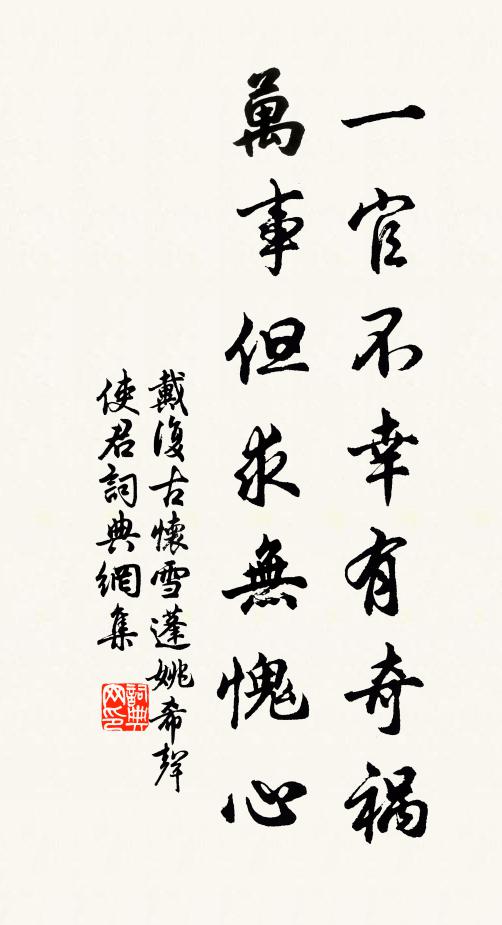 一官不幸有奇禍
萬事但求無愧心
戴復古懷雪蓬姚希聲
使君詞典網集
詞典網印